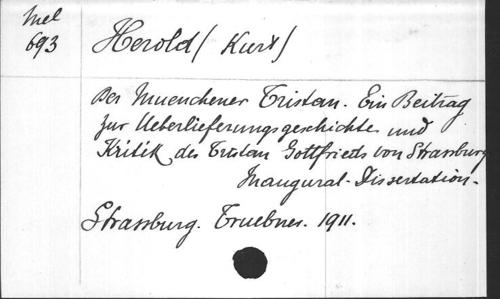 Mel
693
Herold (Kurt)
Der Muenchener Tristan. Ein Beitrag
zur Ueberlieferungsgeschichte und
Kritik des Tristan Gottfrieds von Strassburg
Inaugural-Dissertation.
Strassburg. Truebner. 1911.